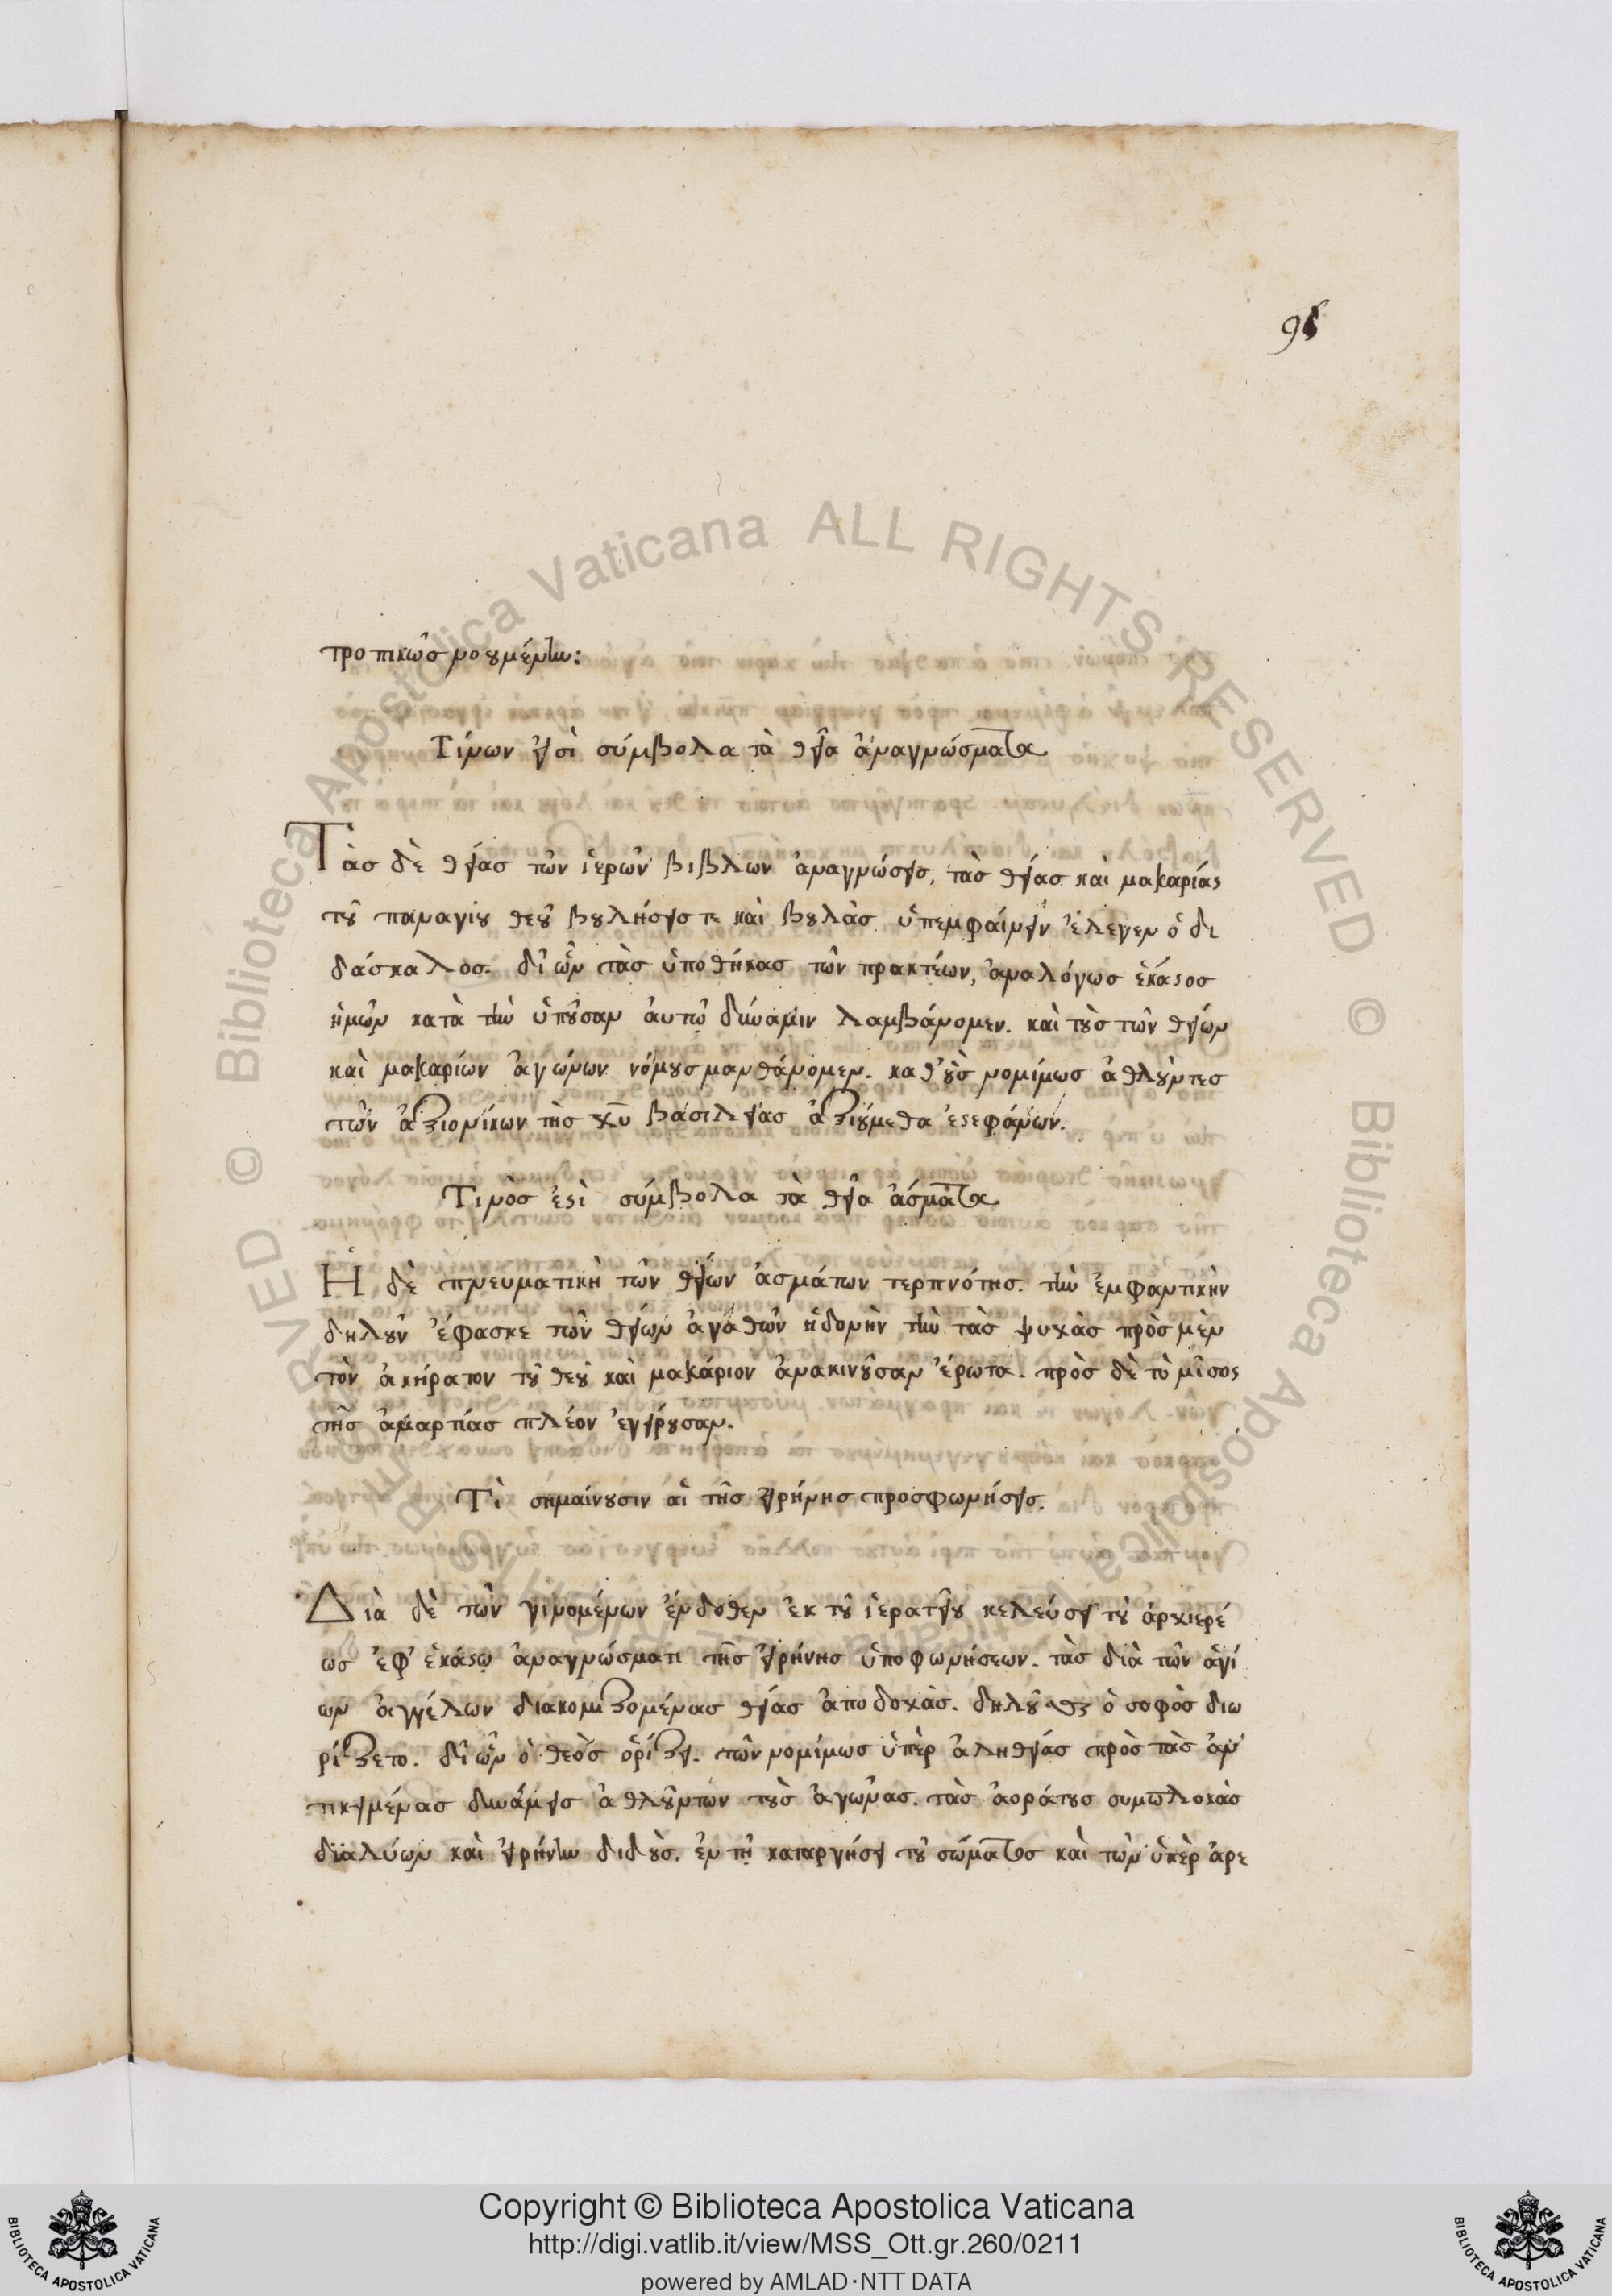 98
τροπικῶς νοουμένην:
Τίνων εἰσὶ σύμβολα τὰ θεῖα ἀναγνώσματα
Τὰς δὲ θείας τῶν ἱερῶν βιβλων ἀναγνώσεις, τὰς θείας καὶ μακαρίας
τοῦ παναγίου θεοῦ βουλήσεις τε καὶ βουλὰς ὑπεμφαίνειν ἔλεγεν ὁ δι
δάσκαλος. δι' ὧν τὰς ὑποθήκας τῶν πρακτέων, ἀναλόγως ἕκαστος
ἡμῶν κατὰ τὴν ὑποῦσαν αὐτῷ δύναμιν λαμβάνομεν. καὶ τοὺς τῶν θείων
καὶ μακαρίων ἀγώνων νόμους μανθάνομεν. καθ' οὓς νομίμως ἀθλοῦντες
τῶν ἀξιονίκων τῆς χυ βασιλείας ἀξιούμεθα ἐστεφάνων.
Τινὸς ἐστὶ σύμβολα τὰ θεῖα ἄσματα
Ἡ δὲ πνευματικὴ τῶν θείων ἀσμάτων τερπνότης. τὴν ἐμφαντικὴν
δηλοῦν ἔφασκε τῶν θείων ἀγαθῶν ἡδονὴν τὴν τὰς ψυχὰς πρὸς μὲν
τὸν ἀκήρατον τοῦ θεοῦ καὶ μακάριον ἀνακινοῦσαν ἔρωτα. πρὸς δὲ τὸ μῖσος
τῆς ἁμαρτίας πλέον ἐγείρουσαν.
Τὶ σημαίνουσιν αἱ τῆς εἰρήνης προσφωνήσεις.
Διὰ δὲ τῶν γινομένων ἔνδοθεν ἐκ τοῦ ἱερατείου κελεύσει τοῦ ἀρχιερέ
ως ἐφ' ἑκάστῳ ἀναγνώσματι τῆς εἰρήνης ὑποφωνήσεων. τὰς διὰ τῶν ἁγί
ων ἀγγέλων διακομιζομένας θείας ἀποδοχὰς. δηλοῦσθαι ὁ σοφὸς διω
ρίζετο. δι' ὧν ὁ θεὸς ὁρίζει. τῶν νομίμως ὑπὲρ ἀληθείας πρὸς τὰς ἀν
τικειμένας δυνάμεις ἀθλούντων τοὺς ἀγῶνας. τὰς ἀοράτους συμπλοκὰς
διαλύων καὶ εἰρήνην διδοὺς. ἐν τῇ καταργήσει τοῦ σώματος καὶ τῶν ὑπὲρ ἀρε
Copyright © Biblioteca Apostolica Vaticana
http://digi.vatlib.it/view/MSS_Ott.gr.260/0211
powered by AMLAD·NTT DATA